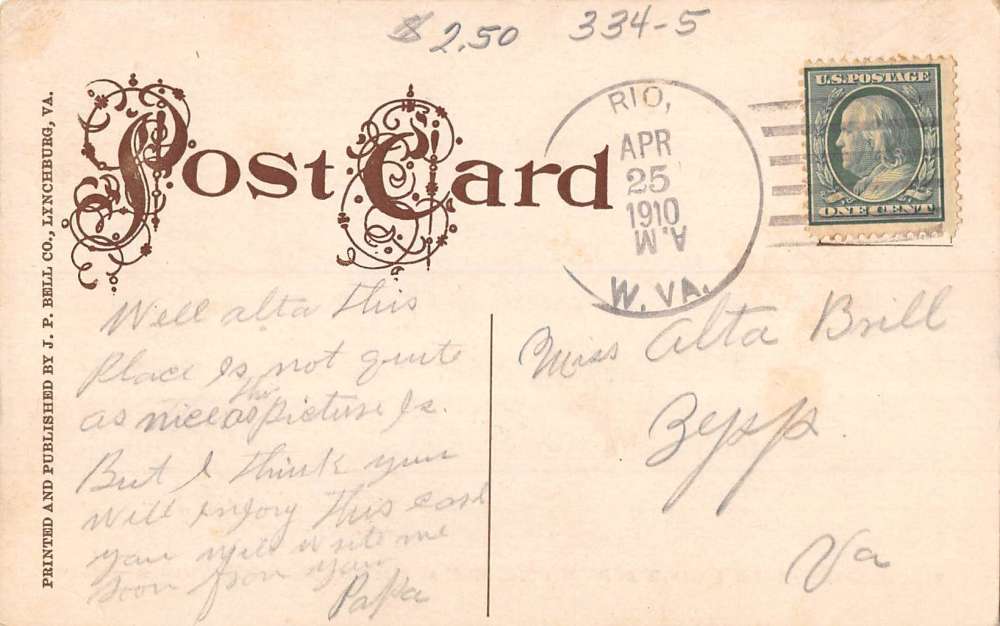 $ 2.50 334-5
PRINTED AND PUBLISHED BY J. P. BELL CO., LYNCHBURG, VA.
Post Card
RIO,
APR
25
1910
A.M
W. VA.
U.S. POSTAGE
ONE CENT
Well alta this
Place Is not quite
as nice as the picture Is.
But I think you
will enjoy this card
you will write me
soon from your
Papa
Miss Alta Brill
Zepp
Va